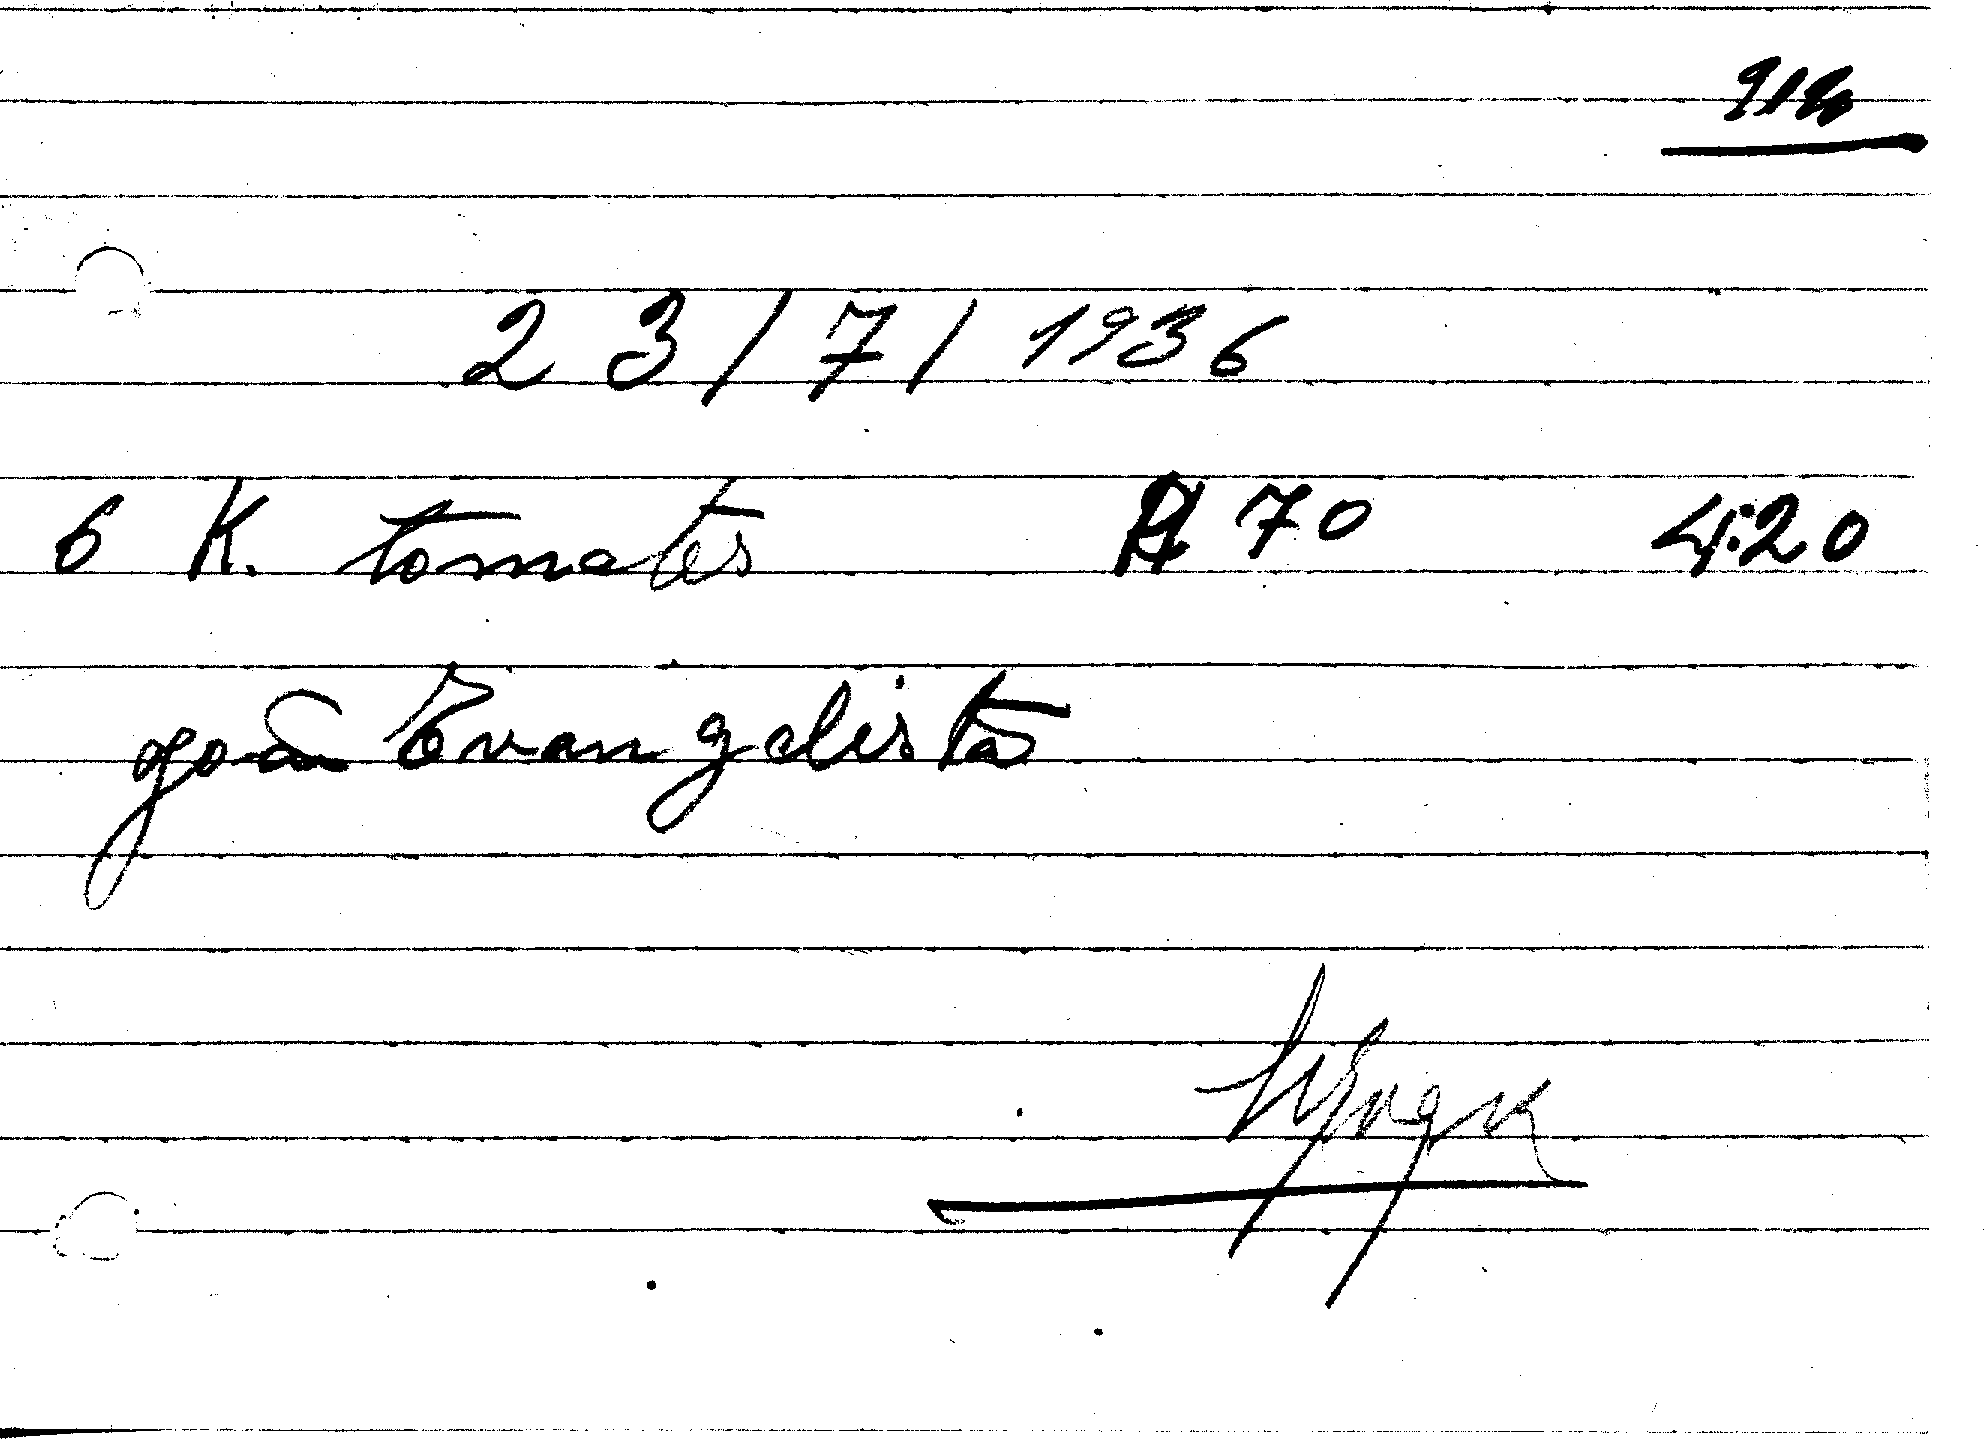 23/7/1936
6 K. tomates 70 4:20
João Evangelista